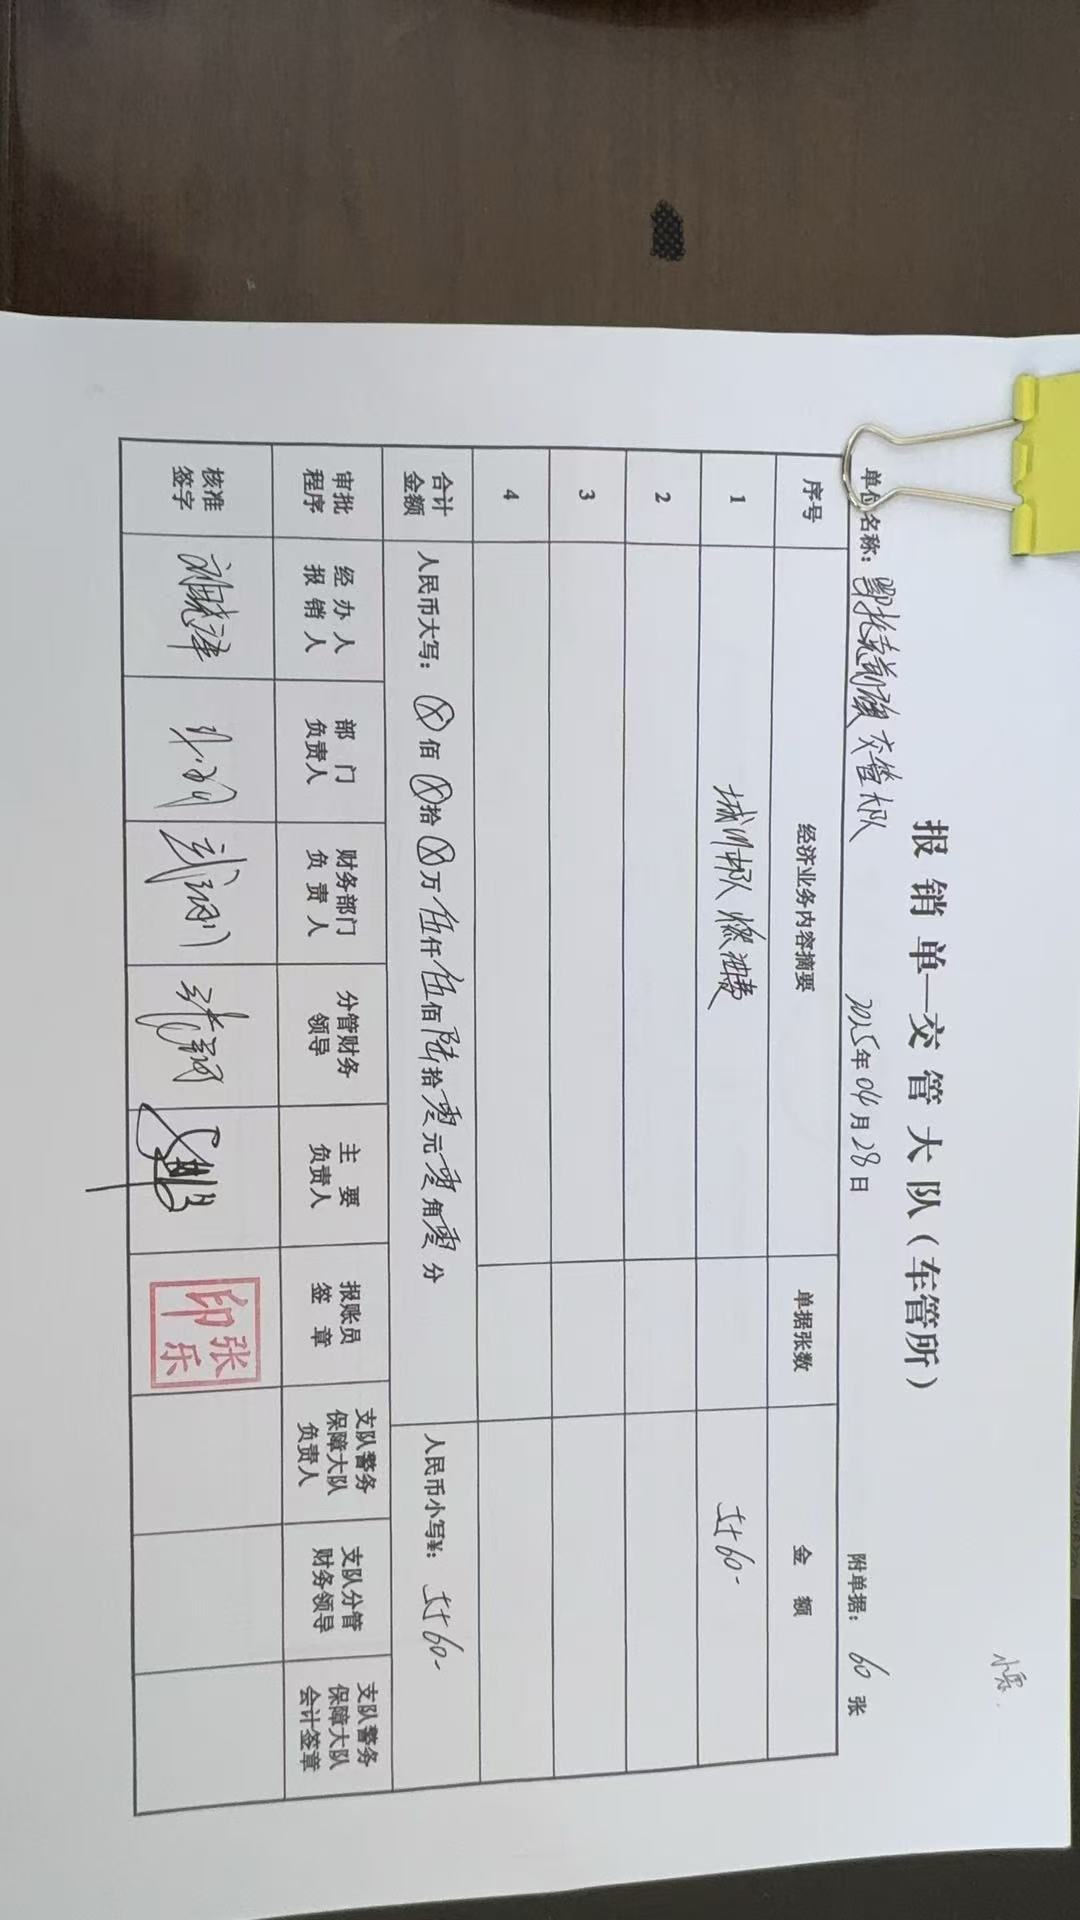 报销单—交管大队（车管所）
单位名称：鄂托克前旗交管大队 2025年04月28日 附单据：60张
序号 经济业务内容摘要 单据张数 金额
1 城川中队燃油费 5560-
2
3
4
合计金额 人民币大写：ⓧ佰ⓧ拾ⓧ万伍仟伍佰陆拾零元零角零分 人民币小写¥：5560-
审批程序 经办人报销人 部门负责人 财务部门负责人 分管财务领导 主要负责人 报账员签章 支队警务保障大队负责人 支队分管财务领导 支队警务保障大队会计签章
核准签字 张乐印